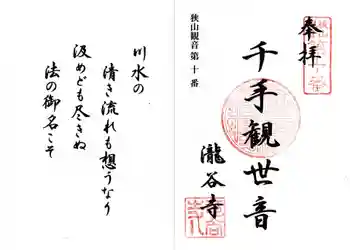 奉拝
狭山観音第十番
千手観世音
瀧谷寺
川水の
清き流れも想うなり
汲めども尽きぬ
法の御名こそ